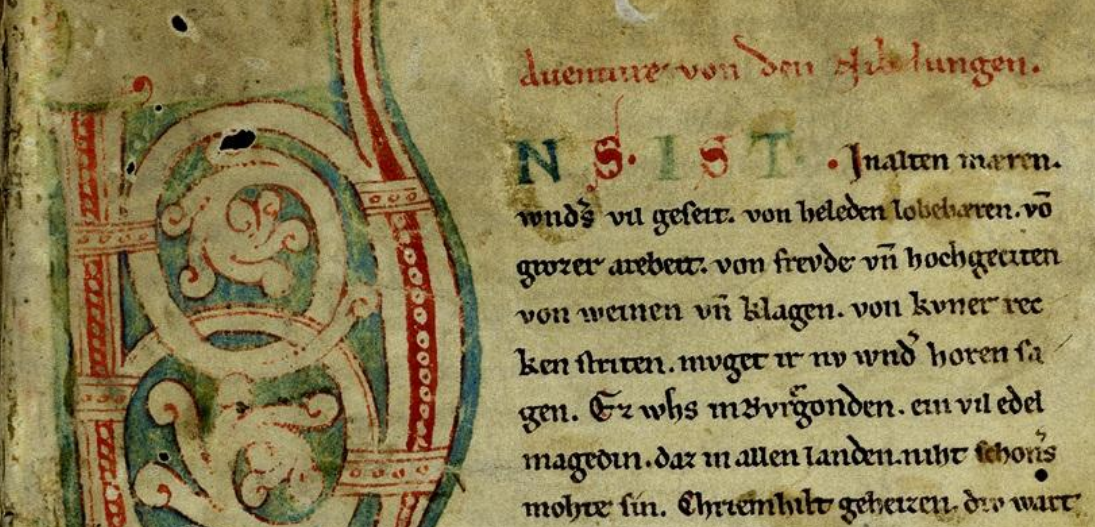 Auenture von den Nibelungen.
VNS. IST. Jn alten mæren.
wndˢ vil geseit. von heleden lobebæren. vō
grozer arebeit. von frevde vn̄ hochgeciten
von weinen vn̄ klagen. von kvner rec
ken striten. mvget ir nv wnd̾ horen sa
gen. Ez whs in Bvrgonden. ein vil edel
magedin. daz in allen landen. niht schonˢs
mohte sin. Chriemhilt geheizen. div wart